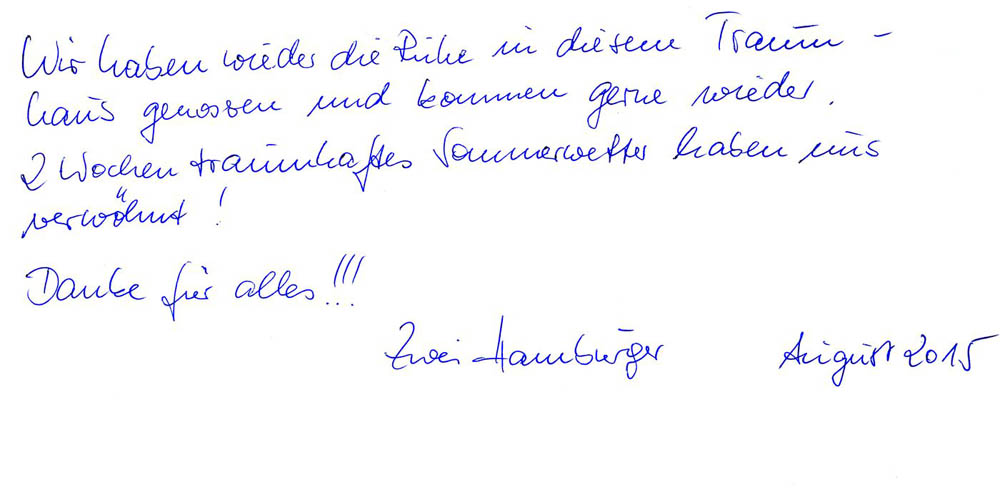 Wir haben wieder die Ruhe in diesem Traum-
haus genossen und kommen gerne wieder.
2 Wochen traumhaftes Sommerwetter haben uns
verwöhnt!
Danke für alles!!!
Zwei Hamburger August 2015